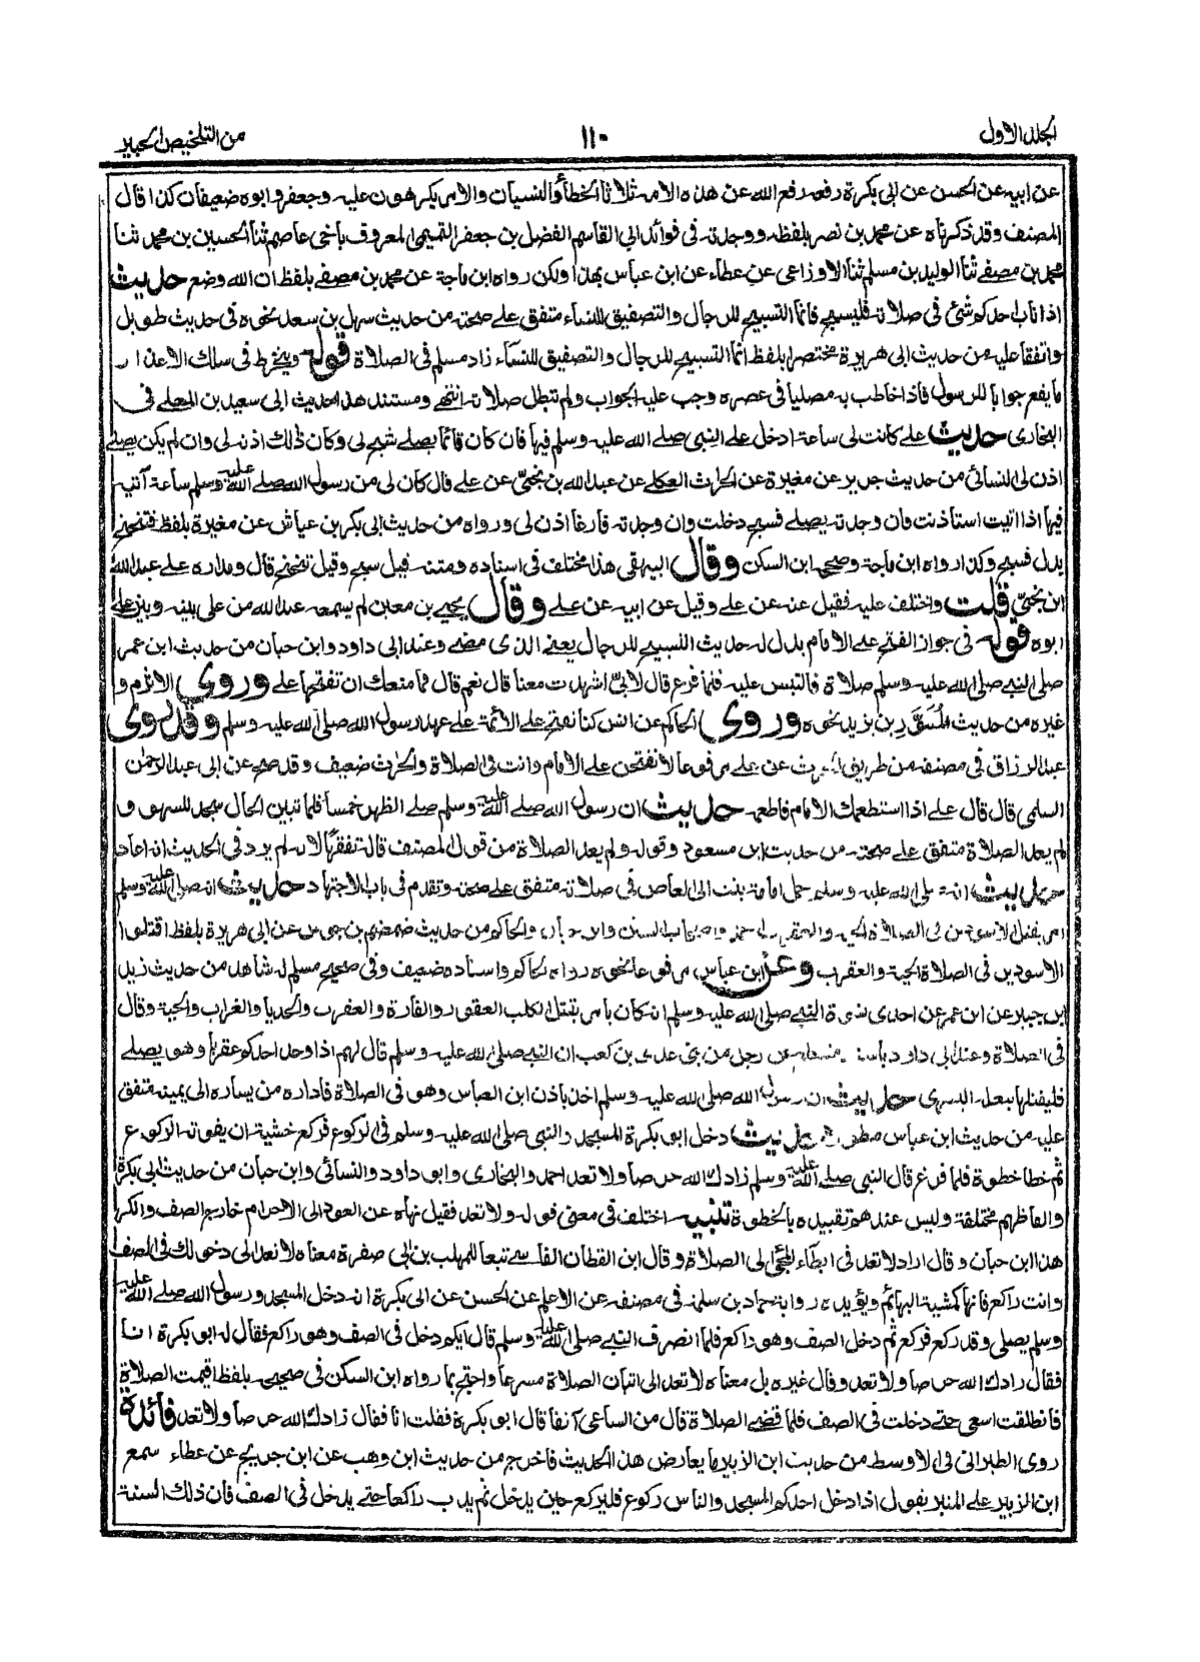 المجلد الاول
١١٠
من التلخيص الحبير
عن ابيه عن الحسن عن ابى بكرة رفعه رفع الله عن هذه الامة ثلاثا الخطأ والنسيان والامر يكرهون عليه وجعفر وابوه ضعيفان كذا قال
المصنف وقد ذكرناه عن محمد بن نصر بلفظه ووجدته فى فوائد ابى القاسم الفضل بن جعفر التميمى المعروف باخى عاصم ثنا الحسين بن محمد ثنا
محمد بن مصفے ثنا الوليد بن مسلم ثنا الاوزاعى عن عطاء عن ابن عباس بهذا ولكن رواه ابن ماجة عن محمد بن مصفے بلفظ ان الله وضع حديث
اذا ناب احدكم شئ فى صلاته فليسبح فانما التسبيح للرجال والتصفيق للنساء متفق على صحته من حديث سهل بن سعد نحوه فى حديث طويل
واتفقا عليه من حديث ابى هريرة مختصرا بلفظ انما التسبيح للرجال والتصفيق للنساء زاد مسلم فى الصلاة قوله وينخرط فى سلك الاعذار
ما يقع جوابا للرسول فاذا خاطب به مصليا فى عصره وجب عليه الجواب ولم تبطل صلاته انتهے ومستند هذا حديث ابى سعيد بن المعلے فى
البخارى حديث علے كانت لى ساعة ادخل علے النبى صلے الله عليه وسلم فيها فان كان قائما يصلے سبح لى وكان ذلك اذنه لى وان لم يكن يصلے
اذن لى النسائى من حديث جرير عن مغيرة عن الحارث العكلے عن عبد الله بن نجىّ عن علے قال كان لى من رسول الله صلے الله عليه وسلم ساعة آتيه
فيها اذا اتيت استاذنت فان وجدته يصلے فسبح دخلت وان وجدته فارغا اذن لى ورواه من حديث ابى بكر بن عياش عن مغيرة بلفظ فتنحنح
بدل فسبح وكذا رواه ابن ماجة وصححه ابن السكن وقال البيهقى هذا مختلف فى اسناده ومتنه قيل سبح وقيل تنحنح قال ومداره علے عبد الله
ابن نجىّ قلت واختلف عليه فقيل عنه عن علے وقيل عن ابيه عن علے وقال يحيے بن معين لم يسمعه عبد الله من على بينه وبين علے
ابوه قوله فى جواز الفتح علے الامام يدل له حديث التسبيح للرجال يعنے الذى مضے وعند ابى داود وابن حبان من حديث ابن عمر
صلى النبے صلى الله عليه وسلم صلاة فالتبس عليه فلما فرغ قال لابىّ اشهدت معنا قال نعم قال فما منعك ان تفتحها علے وروى الاثرم و
غيره من حديث المُسَوَّر بن يزيد نحوه وروى الحاكم عن انس كنا نفتح علے الائمة علے عهد رسول الله صلى الله عليه وسلم وقد روى
عبد الرزاق فى مصنفه من طريق الحرث عن علے مرفوعا لا تفتحن علے الامام وانت فى الصلاة والحرث ضعيف وقد صح عن ابى عبد الرحمٰن
السلمى قال قال علے اذا استطعمك الامام فاطعمه حديث ان رسول الله صلے الله عليه وسلم صلے الظهر خمسا فلما تبين الحال سجد للسهو و
لم يعد الصلاة متفق علے صحته من حديث ابن مسعود وقوله ولم يعد الصلاة من قول المصنف قاله تفقهًا لانه لم يرد فى الحديث انه اعاد
حديث انه صلى الله عليه وسلم حمل امامة بنت ابى العاص فى صلاته متفق علے صحته وتقدم فى باب الاجتهاد حديث انه صلے الله عليه وسلم
امر بقتل الاسودين فى الصلاة الحية والعقرب احمد واصحاب السنن وابن حبان والحاكم من حديث ضمضم بن جوس عن ابى هريرة بلفظ اقتلوا
الاسودين فى الصلاة الحية والعقرب وعن ابن عباس مرفوعا نحوه رواه الحاكم واسناده ضعيف وفى صحيح مسلم له شاهد من حديث زيد
ابن جبير عن ابن عمر عن احدى نسوة النبے صلى الله عليه وسلم انه كان يامر بقتل الكلب العقور والفارة والعقرب والحديا والغراب والحية وقال
فى الصلاة وعند ابى داود باسناد منقطع عن رجل من بنى عدى بن كعب ان النبے صلى الله عليه وسلم قال لهم اذا وجد احدكم عقربا وهو يصلے
فليقتلها بنعله اليسرى حديث ان رسول الله صلى الله عليه وسلم اخذ باذن ابن العباس وهو فى الصلاة فاداره من يساره الى يمينه متفق
عليه من حديث ابن عباس مطولا حديث دخل ابو بكرة المسجد والنبى صلى الله عليه وسلم فى الركوع فركع خشية ان يفوته الركوع
ثم خطا خطوة فلما فرغ قال النبى صلے الله عليه وسلم زادك الله حرصا ولا تعد احمد والبخارى وابو داود والنسائى وابن حبان من حديث ابى بكرة
والفاظهم مختلفة وليس عندهم تقييده بالخطوة تنبيه اختلف فى معنى قوله ولا تعد فقيل نهاه عن العود الى الاحرام خارج الصف وانكر
هذا ابن حبان وقال اراد لا تعد فى ابطاء المجئ الى الصلاة وقال ابن القطان الفاسے تبعا للمهلب بن ابى صفرة معناه لا تعد الى دخولك فى الصف
وانت راكع فانها كمشية البهائم ويؤيده رواية حماد بن سلمة فى مصنفه عن الاعلم عن الحسن عن ابى بكرة انه دخل المسجد ورسول الله صلے الله عليه
وسلم يصلى وقد ركع فركع ثم دخل الصف وهو راكع فلما انصرف النبے صلى الله عليه وسلم قال ايكم دخل فى الصف وهو راكع فقال له ابو بكرة انا
فقال زادك الله حرصا ولا تعد وقال غيره بل معناه لا تعد الى اتيان الصلاة مسرعا واحتج بما رواه ابن السكن فى صحيحه بلفظ اقيمت الصلاة
فانطلقت اسعى حتے دخلت فى الصف فلما قضے الصلاة قال من الساعى آنفا قال ابو بكرة فقلت انا فقال زادك الله حرصا ولا تعد فائدة
روى الطبرانى فى الاوسط من حديث ابن الزبير ما يعارض هذا الحديث فاخرج من حديث ابن وهب عن ابن جريج عن عطاء سمع
ابن الزبير علے المنبر يقول اذا دخل احدكم المسجد والناس ركوع فليركع حين يدخل ثم يدب راكعا حتے يدخل فى الصف فان ذلك السنة